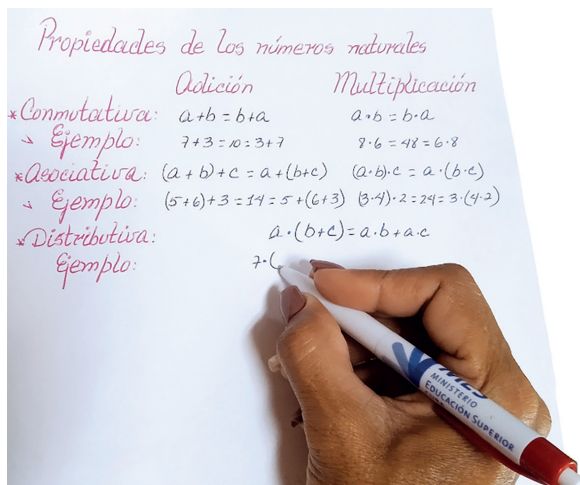 Propiedades de los números naturales
Adición Multiplicación
* Conmutativa: a+b = b+a a·b = b·a
→ Ejemplo: 7+3 = 10 = 3+7 8·6 = 48 = 6·8
* Asociativa: (a+b)+c = a+(b+c) (a·b)·c = a·(b·c)
→ Ejemplo: (5+6)+3 = 14 = 5+(6+3) (3·4)·2 = 24 = 3·(4·2)
* Distributiva: a·(b+c) = a·b+a·c
Ejemplo: 7·(
MINISTERIO
EDUCACIÓN SUPERIOR